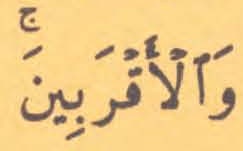 وَٱلْأَقْرَبِينَۚ